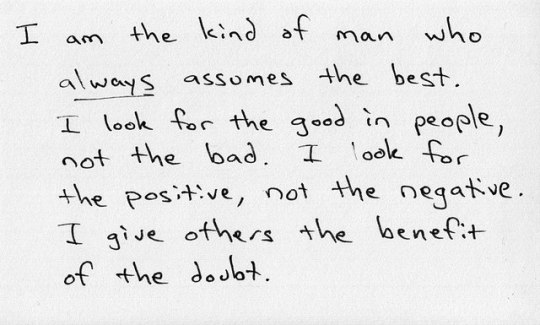 I am the kind of man who
always assumes the best.
I look for the good in people,
not the bad. I look for
the positive, not the negative.
I give others the benefit
of the doubt.